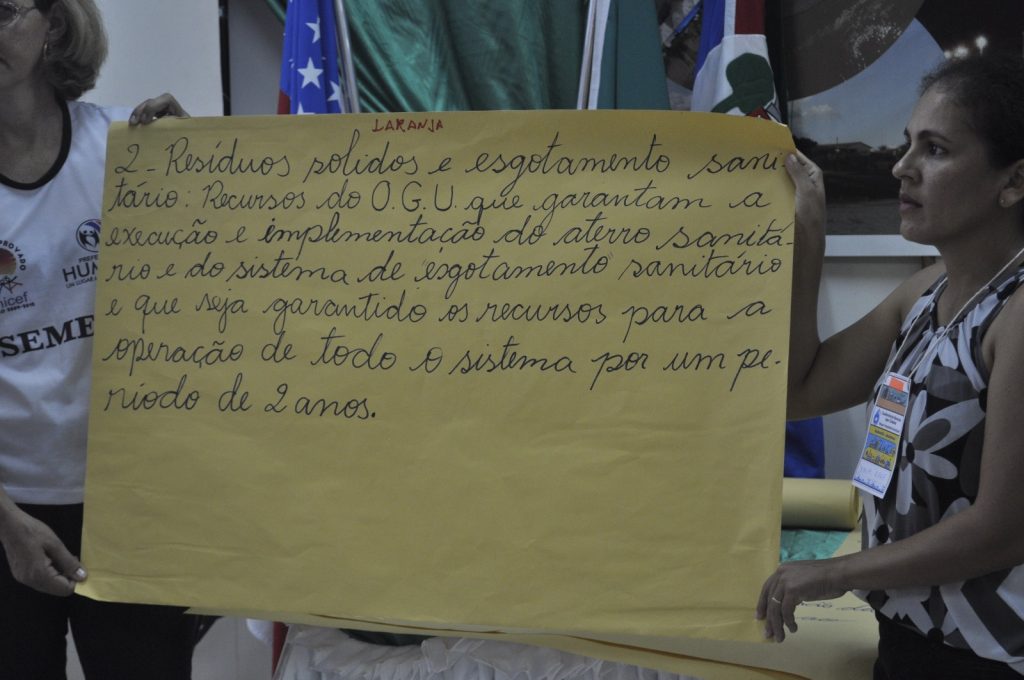 LARANJA
2 - Resíduos solidos e esgotamento sani-
tário: Recursos do O.G.U. que garantam a
execução e implementação do aterro sanitá-
rio e do sistema de "esgotamento" sanitário
e que seja garantido os recursos para a
operação de todo o sistema por um pe-
ríodo de 2 anos.
APROVADO
unicef
HUM
SEME